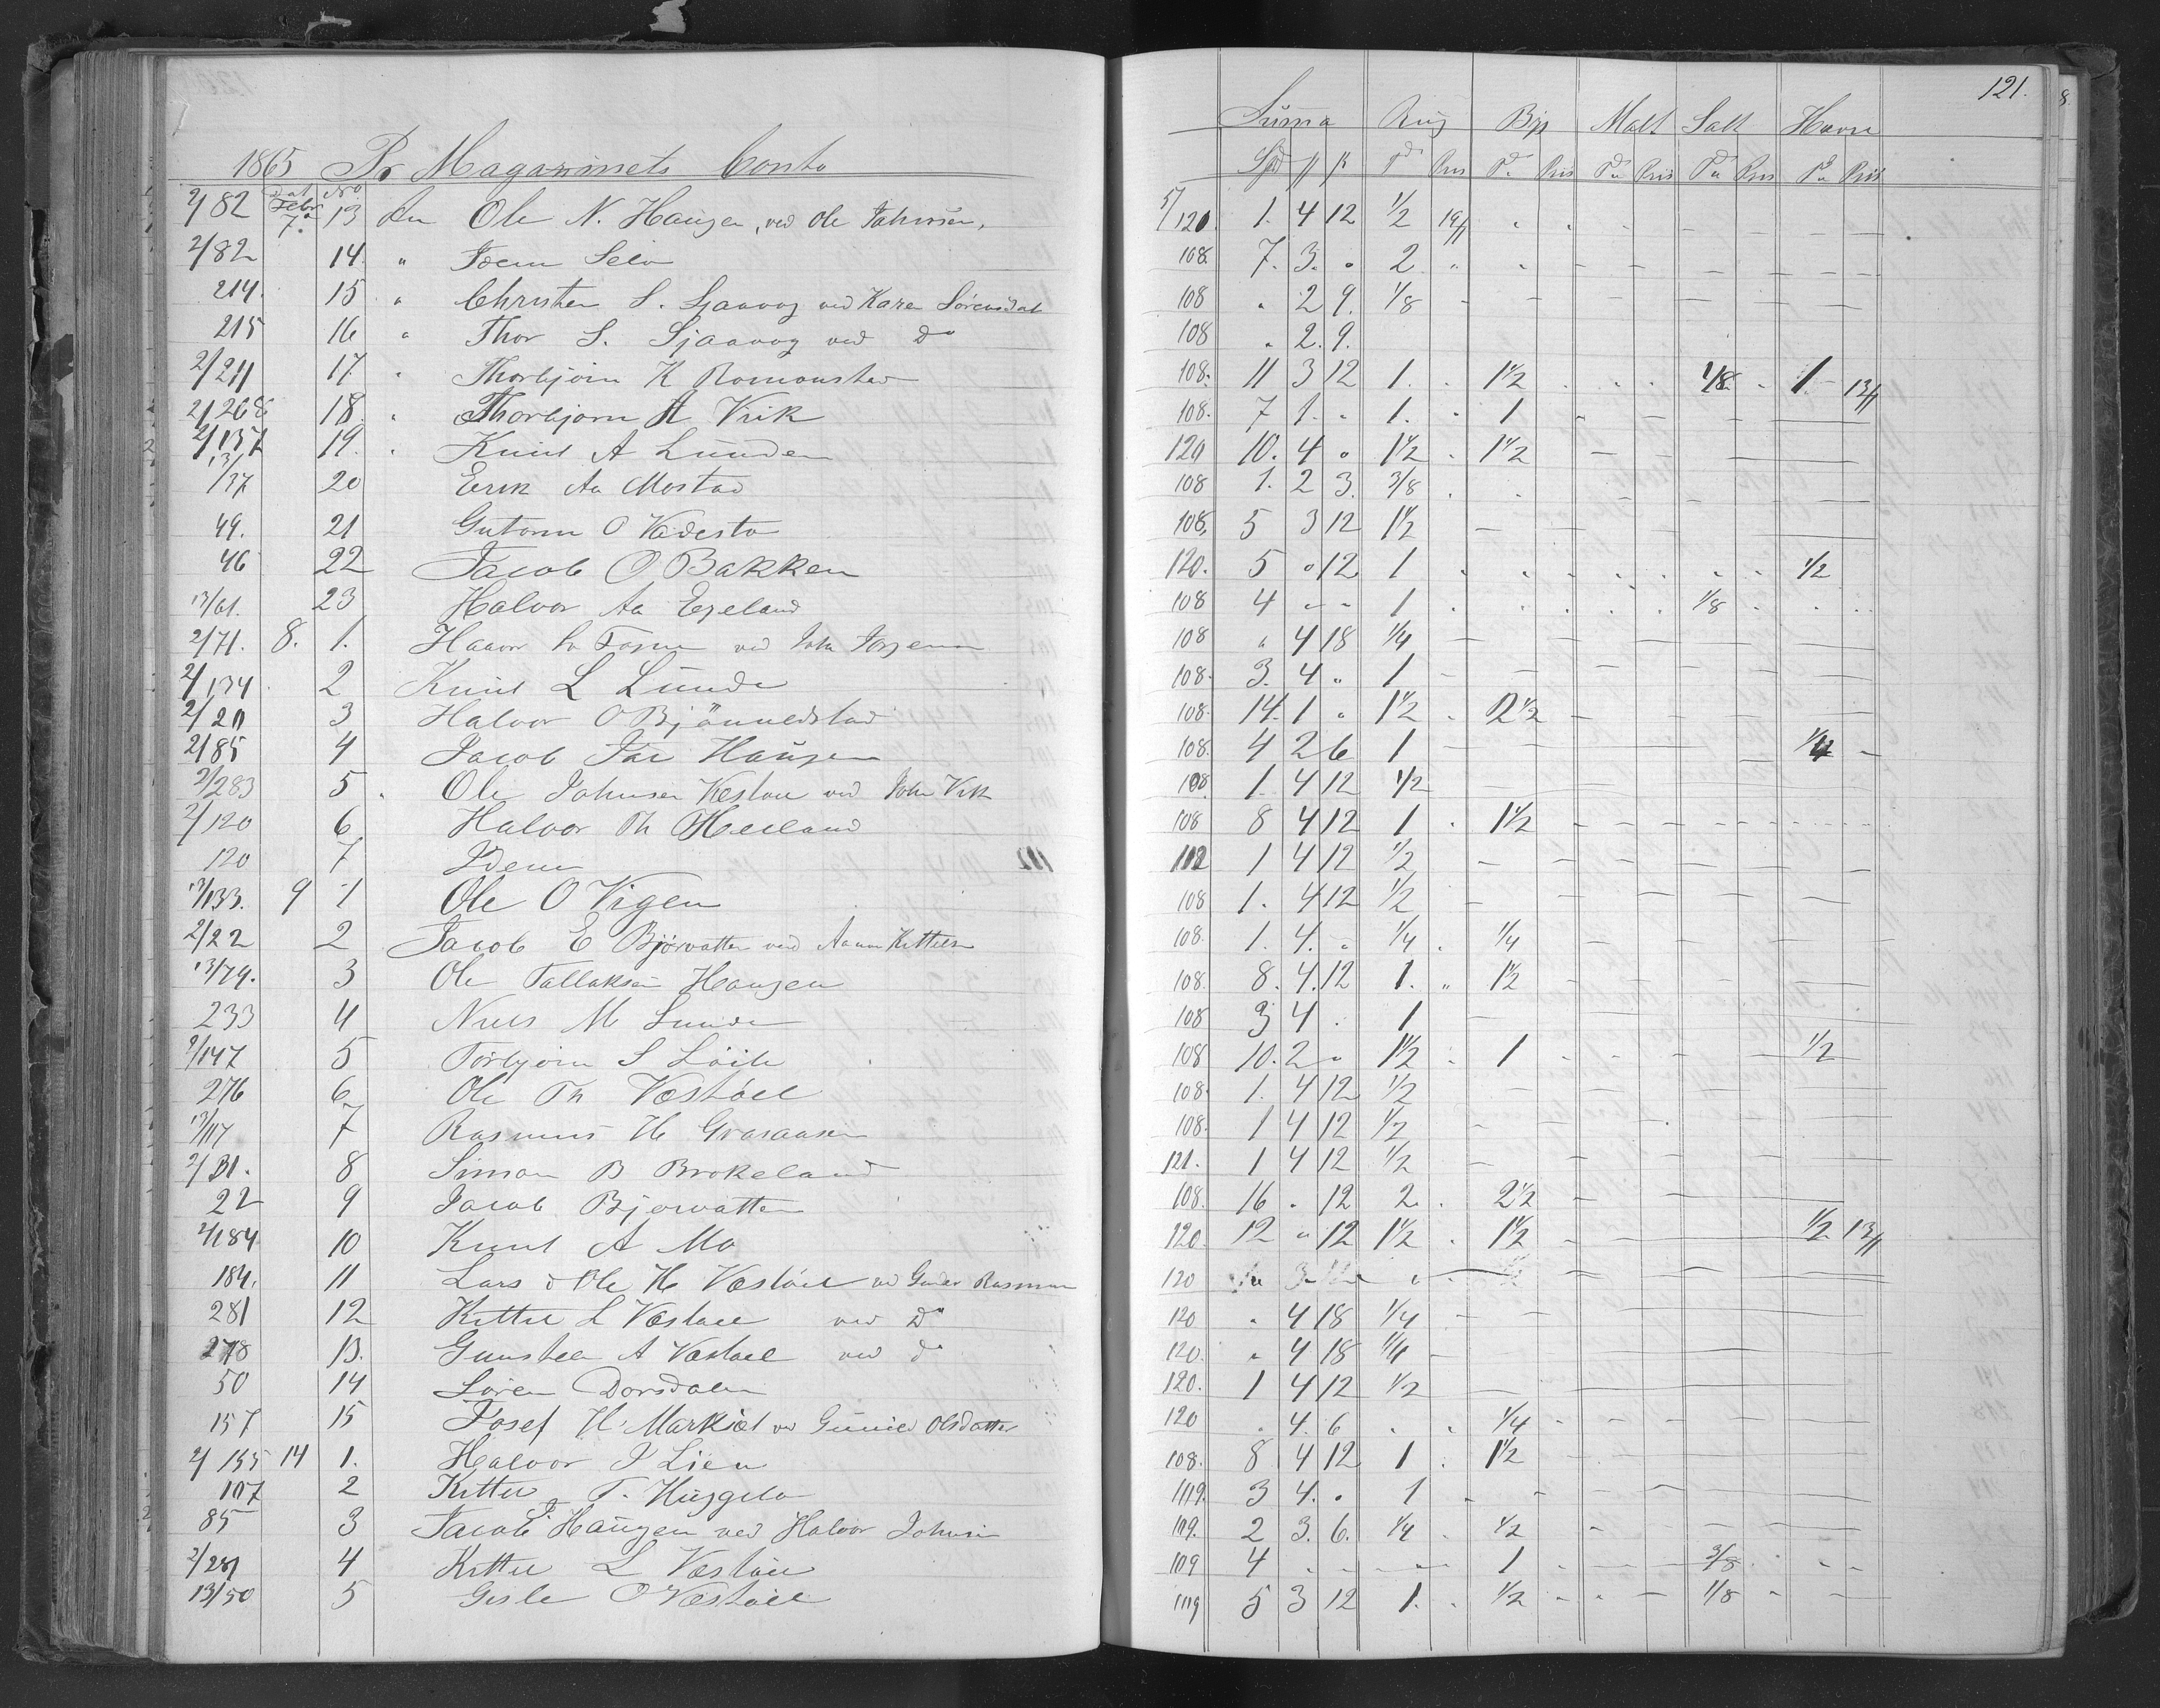 121.
1865 Pr Magazinets Conto Suma Rug Byg Malt Salt Havre
Dat No Spd ß Td Pris Td Pris Td Pris Td Pris Td Pris
2/82 Febr 7. 13 An Ole N. Haugen, ved Ole Johnsen, 5/120 1. 4 12 1/2 19
2/82 14 " Idem Selv 108. 7. 3. " 2 "
214. 15 " Christen S. Sjaavog ved Karen Sørensdat 108 " 2 9. 1/8
215 16 " Thor S. Sjaavog ved do 108 " 2. 9.
2/211 17. " Thorbjørn K Romonsted 108. 11 3 12 1. 1 1/2 1/8 1 13
2/268 18. " Thorbjørn A Vrik 108. 7 1. " 1. " 1
2/137 19. " Knud A Lunden 120 10. 4 " 1 1/2 1 1/2
13/37 20 Erik Aa Mostad 108 1. 2 3. 3/8
49. 21 Gutorm O Vædesto 108. 5 3 12 1 1/2
46 22 Jacob O Bakken 120. 5 " 12 1 1/2
13/61. 23 Halvor Aa Egeland 108 4 " " 1 1/8
2/71. 8. 1. Haavor ved John 108 " 4 18 1/4
2/134 2 Knud L Lunde 108. 3. 4 " 1
2/20 3 Halvor O Bjönneldstad 108. 14. 1 " 1 1/2 2 1/2
2/85 4 Jacob Haugen 108. 4 2 6 1 1/4
2/283 5 Ole Johnsen Vestøl ved John Vrik 108 1. 4 12 1/2
2/120 6 Halvor Th Heiland 108 8 4 12 1 1 1/2
120 7 Idem 112 1 4 12 1/2
13/133. 9 1 Ole O Vigen 108 1. 4 12 1/2
2/22 2 Jacob E Bjørvatten ved Aanon Kittelsen 108. 1. 4. " 1/4 1/4
13/79. 3 Ole Tallaksen Haugen 108. 8. 4. 12 1. " 1 1/2
233 4 Niels M Lunde 108 3 4 . 1
2/147 5 Torbjørn S Löite 108 10. 2 " 1 1/2 1 1/2
276 6 Ole Th Vestøl 108. 1. 4 12 1/2
13/117 7 Rasmus H Grasaasen 108. 1 4 12 1/2
2/31. 8 Simon B Brokeland 121. 1 4 12 1/2
22 9 Jacob Bjørvatten 108. 16 " 12 2. 2 1/2
2/184 10 Knud A Mo 120. 12 " 12 1 1/2 1 1/2 1/2 13
184. 11 Lars & Ole H Vestøl ved Gunder Rasmusen 120
281 12 Kittel L Vestøl ved Do 120 " 4 18 1/4
278 13. Gunsten A Vestøl ved do 120. " 4 18 1/4
50 14 Søren Dorsdalen 120. 1 4 12 1/2
157 15 Josef H. Marksæt ved Gunild Olsdatter 120 . 4. 6 1/4
2/155 14 1. Halvor J Lien 108. 8 4 12 1 1 1/2
107 2 Kittel T. Huggelo 119. 3 4. " 1
85 3 Jacob J Haugen ved Halvor Johnsen 109. 2 3. 6. 1/4 1/2
2/281 4 Kittel L Vestøl 109 4 1 3/8
13/50 5 Gisle O Vestøl 119 5 3 12 1. 1/2 1/8